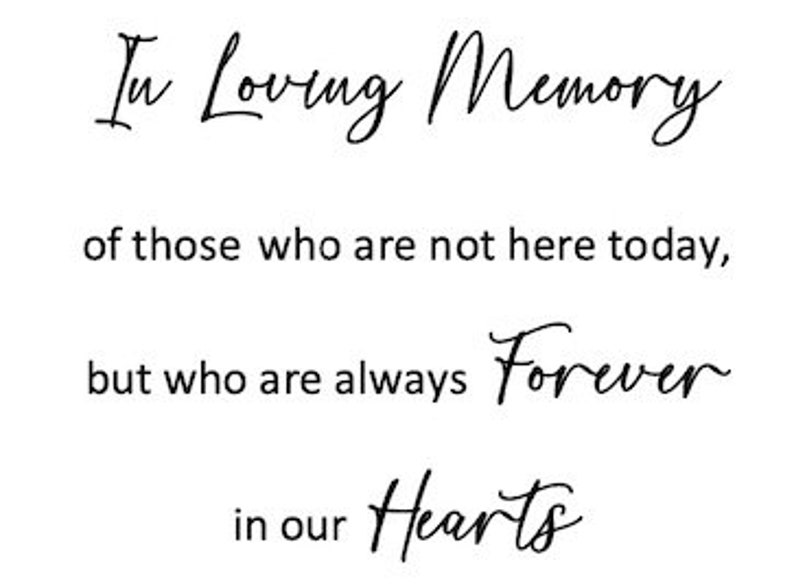 In Loving Memory
of those who are not here today,
but who are always Forever
in our Hearts